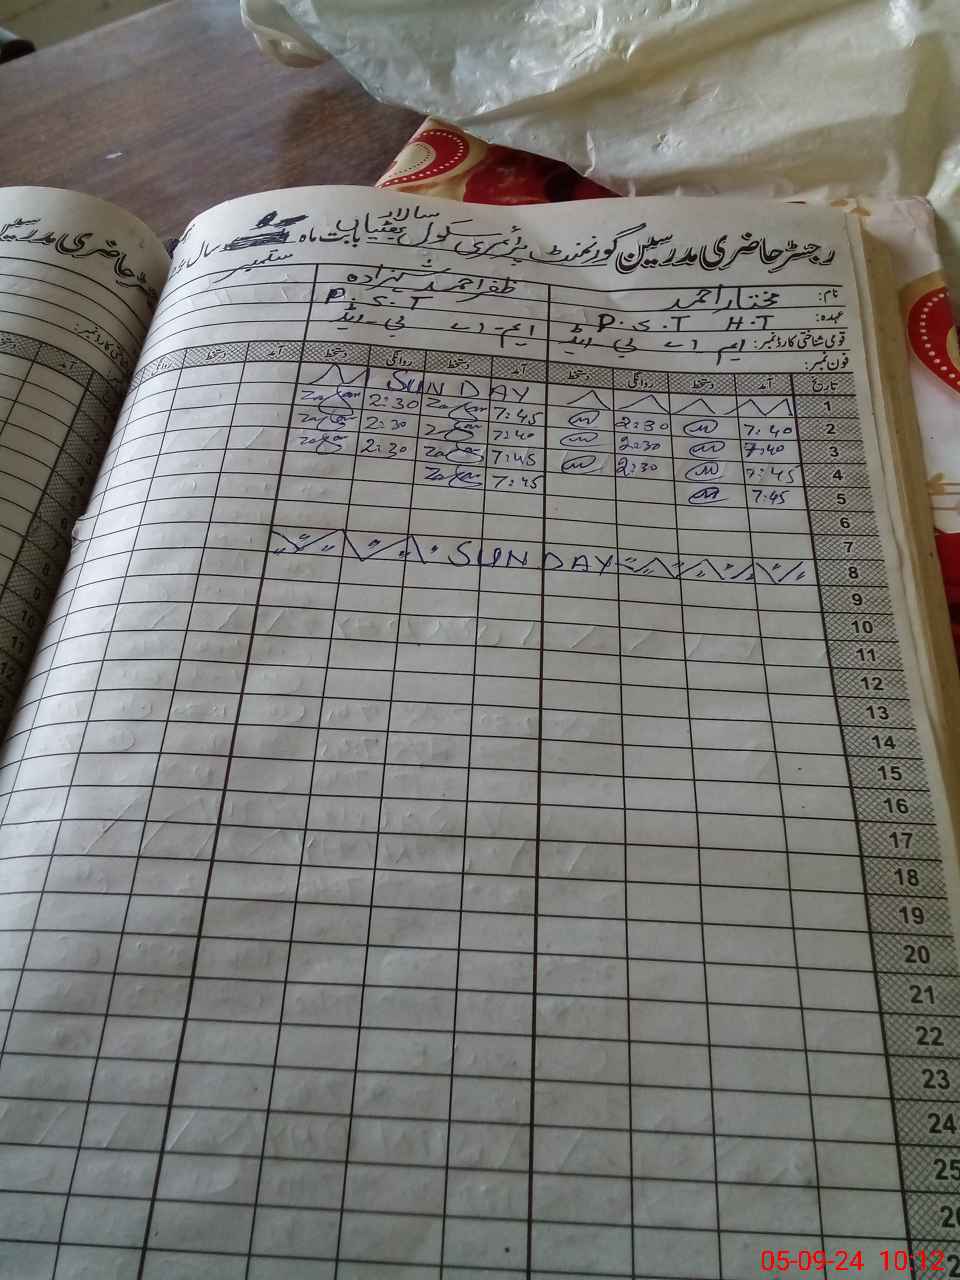 رجسٹر حاضری مدرسین گورنمنٹ پرائمری سکول سالار بھٹیاں بابت ماہ ستمبر سال
نام: مختار احمد ظفر احمد شہزادہ
عہدہ: P.S.T H.T P.S.T
قومی شناختی کارڈ نمبر: ایم-اے بی-ایڈ ایم-اے بی-ایڈ
فون نمبر:
تاریخ آمد دستخط روانگی دستخط آمد دستخط روانگی دستخط آمد دستخط روانگی
1 SUNDAY
2 7:40 2:30 7:45 2:30
3 7:40 2:30 7:40 2:30
4 7:45 2:30 7:45 2:30
5 7:45 7:45
6
7
8 SUNDAY
9
10
11
12
13
14
15
16
17
18
19
20
21
22
23
24
25
05-09-24 10:12